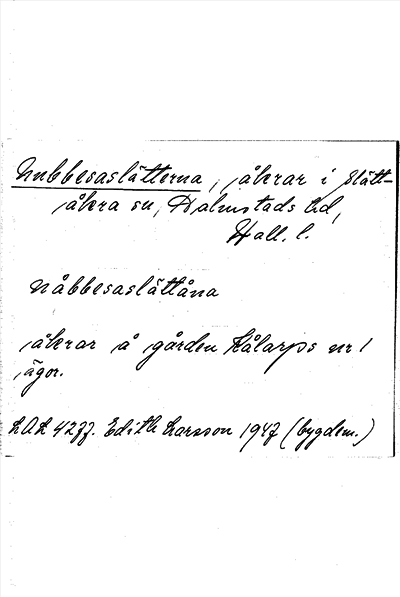 Nubbesaslätterna, åkrar i Slätt-
åkra sn, Halmstads hd,
Hall. l.
nåbbesaslättåna
åkrar å gården Kålarps nr 1
ägor.
LAL 4277. Edith Larsson 1947 (bygdem.)